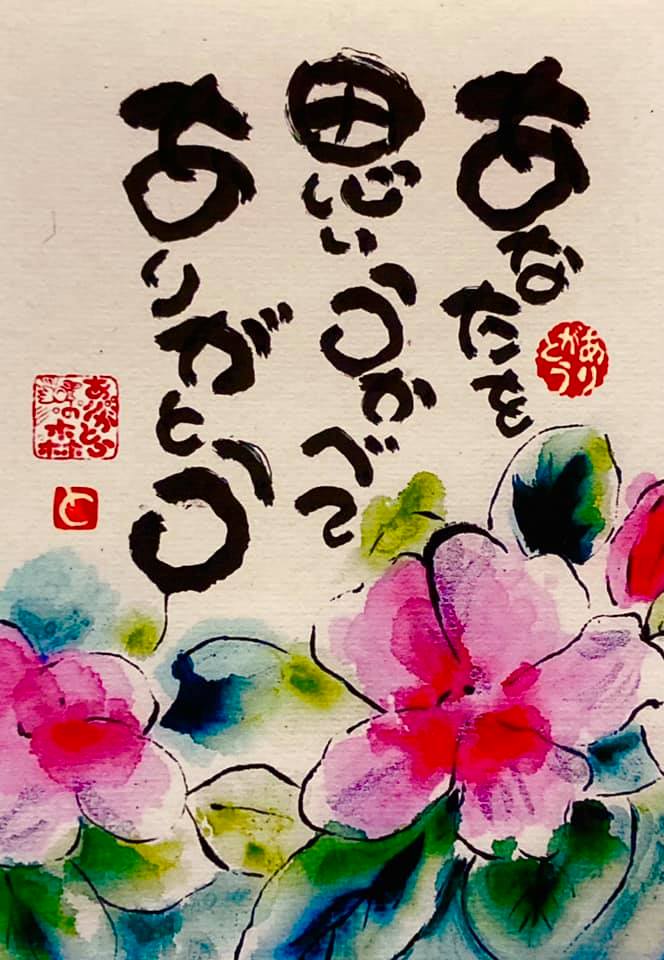 あなたを
思いうかべて
ありがとう
ありがとう
ありがとう
の森
と